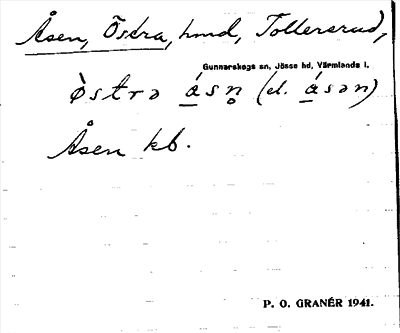 Åsen, Östra, hmd, Tollersrud,
Gunnarskogs sn, Jösse hd, Värmlands l.
ø̀strə ásn̥ (el. ásən)
Åsen kb.
P. O. GRANÉR 1941.